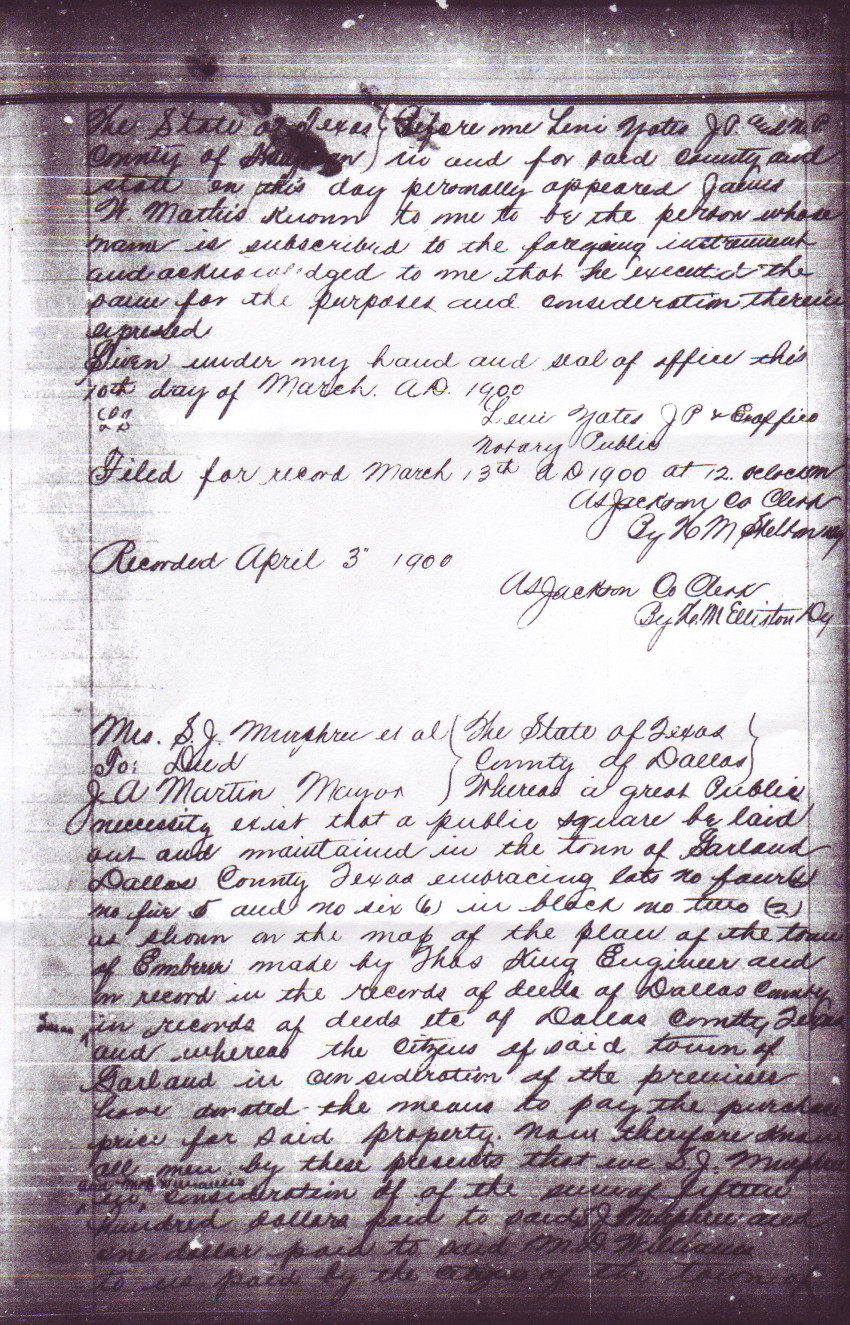 439
The State of Texas } Before me Levi Yates J P. and N. P
County of } in and for said county and
state on this day personally appeared James
W. Mathis Known to me to be the person whose
name is subscribed to the foregoing instrument
and acknowledged to me that he executed the
same for the purposes and consideration therein
expressed
Given under my hand and seal of office this
10th day of March. A.D. 1900
Levi Yates J P & Exoffico
Notary Public
Filed for record March 13th A D 1900 at 12. oclock m
A S Jackson Co Clerk
By H M Shelton Dy
Recorded April 3" 1900
A S Jackson Co Clerk
By H. M Elliston Dy
Mrs. S. J. Murphree et al ( The State of Texas }
To: Deed County of Dallas }
J. A Martin Mayor ) Whereas a great Public
necessity exist that a public square be laid
out and maintained in the town of Garland
Dallas County Texas embracing lots no four (4)
no five 5 and no six (6) in block no two (2)
as shown on the map of the plan of the town
of Embree made by Thos King Engineer and
on record in the records of deeds of Dallas County
Texas in records of deeds etc of Dallas County Texas
and whereas the citizens of said town of
Garland in consideration of the premises
have donated the means to pay the purchase
price for said property. Now therefore Know
all men by these presents that we S. J. Murphree
and M. D. Williams
in consideration of of the sum of fifteen
hundred dollars paid to said S J Murphree and
one dollar paid to said M D Williams
to us paid by the citizens of the town of